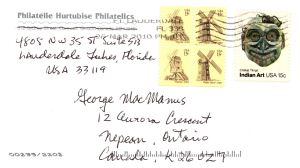 Philatélie Hurtubise Philatelics
4805 NW 35 St Suite 513
Lauderdale Lakes Florida
USA 33119
MAR 2010 PM
Indian Art USA 15c
George MacManus
12 Aurora Crescent
Nepean, Ontario
Canada K2G 0Z7